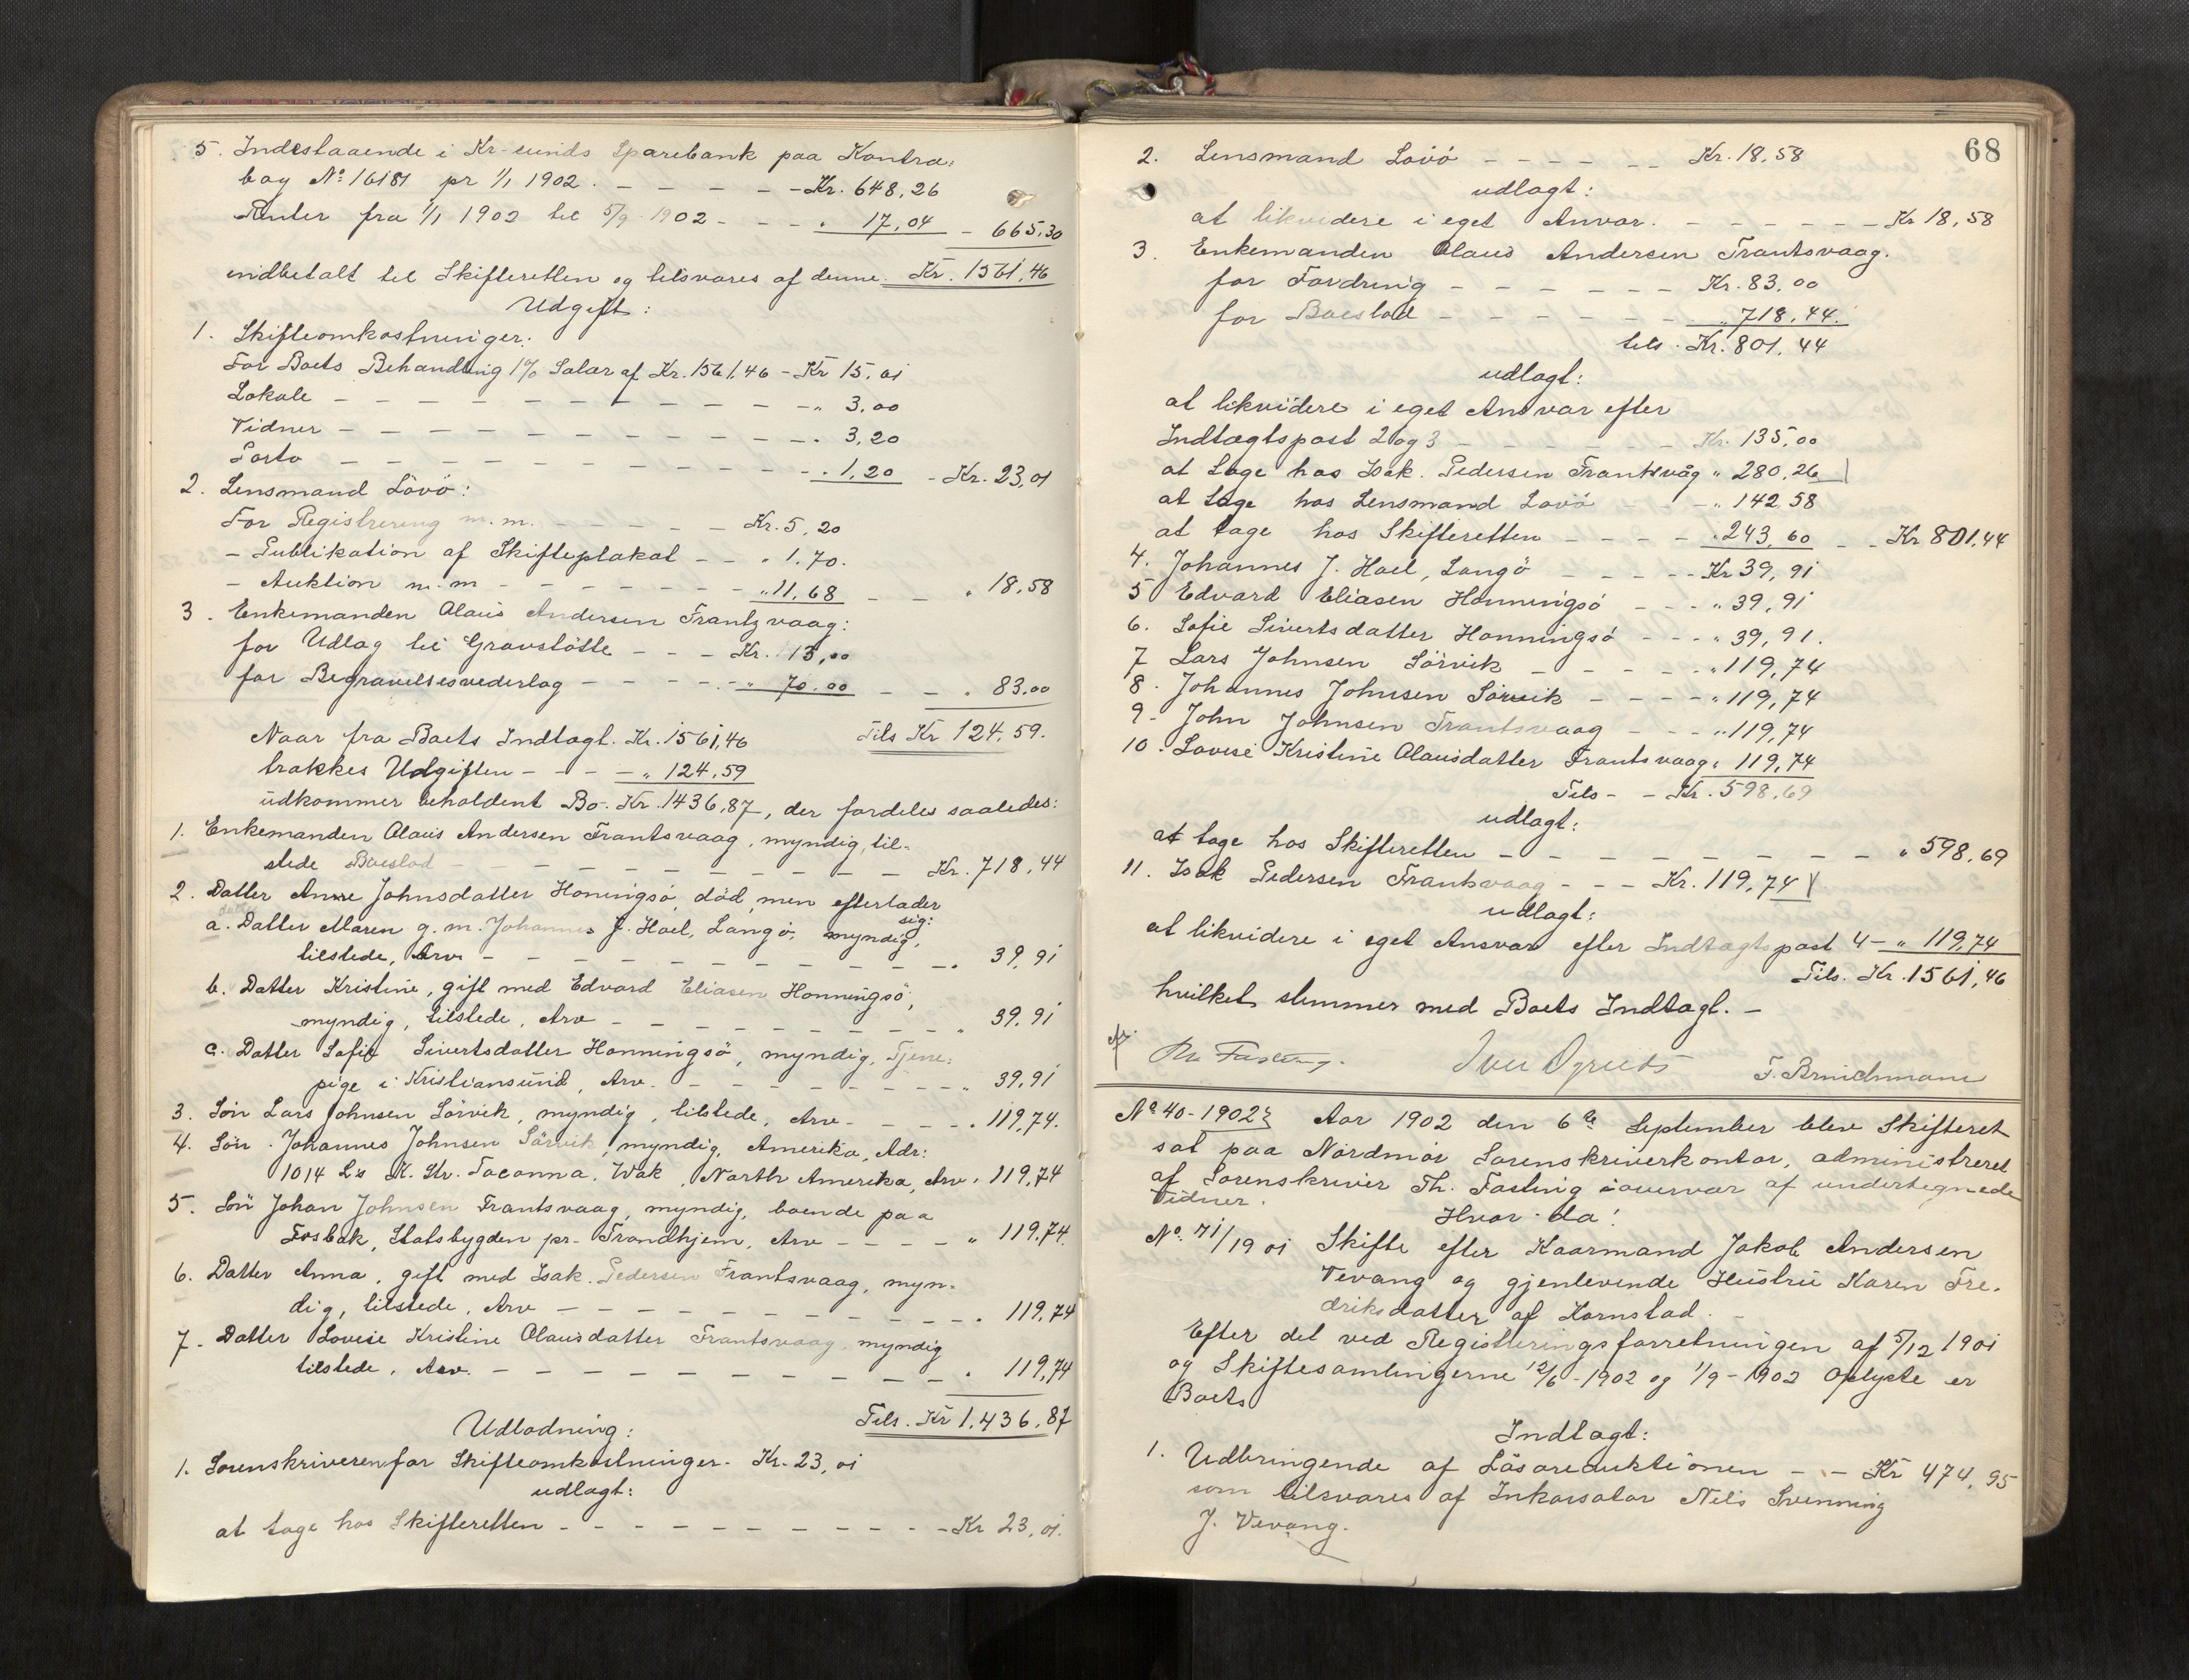 5. Indestaaende i Kr-sunds Sparebank paa Kontra-
bog No 16181 pr 1/1 1902. - - - - - Kr. 648,26
Renter fra 1/1 1902 til 5/9-1902 - - - " 17,04 - 665,30
indbetalt til Skifteretten og tilsvares af denne. Kr. 1561,46
Udgift:
1. Skifteomkostninger:
For Boets Behandling 1% Salær af Kr. 1561,46 - Kr 15,61
Lokale - - - - - - - - - - - " 3,00
Vidner - - - - - - - - - - - " 3,20
Porto - - - - - - - - - - - " 1,20 - Kr. 23,01
2. Lensmand Lövö:
For Registrering m.m. - - - - - Kr. 5,20
- Publikation af Skifteplakat - - " 1.70.
- Auktion m.m - - - - - - " 11,68 - - " 18,58
3. Enkemanden Olaus Andersen Frantzvaag:
for Udlæg til Gravstötte - - - Kr. 13,00
for Begravelsesvederlag - - - - " 70.00 - - " 83.00
Tils Kr 124,59.
Naar fra Boets Indtægt. Kr. 1561,46
trækkes Udgiften - - - " 124,59
udkommer beholdent Bo. Kr. 1436,87, der fordeles saaledes:
1. Enkemanden Olaus Andersen Frantsvaag, myndig, til-
stede Boeslod - - - - - - - - - Kr. 718,44
2. Datter Anne Johnsdatter Honingsö, död, men efterlader
sig:
a. Datter Maren g. m. Johannes J. Hoel, Langö, myndig,
tilstede, Arv - - - - - - - - - - - " 39,91
b. Datter Kristine, gift med Edvard Eliasen Honningsö,
myndig, tilstede, Arv - - - - - - - - - " 39,91
c. Datter Sofie Sivertsdatter Honningsö, myndig, Tjene-
pige i Kristiansund, Arv. - - - - - - - - " 39,91
3. Sön Lars Johnsen Sörvik, myndig, tilstede, Arv - - - - " 119,74.
4. Sön Johannes Johnsen Sörvik, myndig, Amerika, Adr:
1014 So K. Str. Tacomna. Wak, North Amerika, Arv. " 119,74
5. Sön Johan Johnsen Frantsvaag, myndig, boende paa
Fosbak, Statsbygden pr. Trondhjem, Arv - - - - " 119,74.
6. Datter Anna, gift med Isak. Pedersen Frantsvaag, myn-
dig, tilstede, Arv - - - - - - - - - - " 119,74
7. Datter Lovise Kristine Olausdatter Frantsvaag, myndig
tilstede, Arv. - - - - - - - - - - " 119,74
Tils. Kr 1,436,87
Udlodning:
1. Sorenskriveren for Skifteomkostninger - Kr. 23,01
udlagt:
at tage hos Skifteretten - - - - - - - - - - - Kr 23,01.
68
2. Lensmand Lövö - - - - - - Kr. 18,58
udlagt:
at likvidere i eget Ansvar. - - - - - - Kr 18,58
3. Enkemanden Olaus Andersen Frantsvaag.
for Fordring - - - - - - Kr. 83,00
for Boeslod - - - - - - " 718,44.
tils. Kr. 801,44
udlagt:
at likvidere i eget Ansvar efter
Indtægtspost 2 og 3 - - - - - - Kr. 135,00
at tage hos Isak. Pedersen Frantsvåg " 280,26
at tage hos Lensmand Lövö - - " 142,58
at tage hos Skifteretten - - - - " 243,60 - - Kr 801,44
4. Johannes J. Hoel, Langö - - - - - Kr 39,91
5 Edvard Eliasen Honningsö - - - " 39,91
6. Sofie Sivertsdatter Honningsö - - - " 39,91.
7 Lars Johnsen Sörvik - - - - - " 119,74
8. Johannes Johnsen Sörvik - - - - " 119,74
9- John Johnsen Frantsvaag - - - " 119,74
10. Lovise Kristine Olausdatter Frantsvaag " 119,74
Tils - - Kr. 598,69
udlagt:
at tage hos Skifteretten - - - - - - - - - " 598,69
11. Isak Pedersen Frantsvaag - - - Kr. 119,74
udlagt:
at likvidere i eget Ansvar efter Indtægtspost 4 - " 119,74
Tils. Kr. 1561,46
hvilket stemmer med Boets Indtægt. -
Th. Fasting. Iver Ogreids F. Brnichmann
No 40-1902 } Aar 1902 den 6te September blev Skifteret
sat paa Nordmör Sorenskriverkontor, administreret
af Sorenskriver Th. Fasting i overvær af undertegnede
Vidner.
Hvor da:
No. 71/1901 Skifte efter Kaarmand Jakob Andersen
Vevang og gjenlevende Hustru Karen Fre-
driksdatter af Kornstad.
Efter det ved Registreringsforretningen af 5/12 1901
og Skiftesamlingerne 12/6-1902 og 1/9-1902 Oplyste er
Boets
Indtægt:
1. Udbringende af Lösöreauktionen - - Kr 474,95
som tilsvares af Inkassator Nils Svenning
J. Vevang.